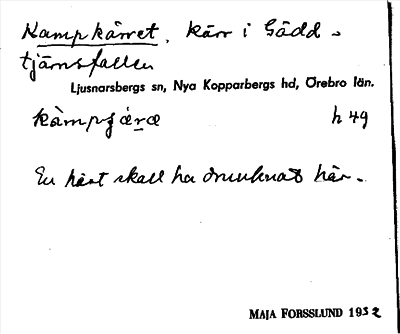 Kampkärret, kärr i Gädd-
tjärnsfallen
Ljusnarsbergs sn, Nya Kopparbergs hd, Örebro län.
kàmpɟæræ h 49
En häst skall ha drunknat här.
MAJA FORSSLUND 1932